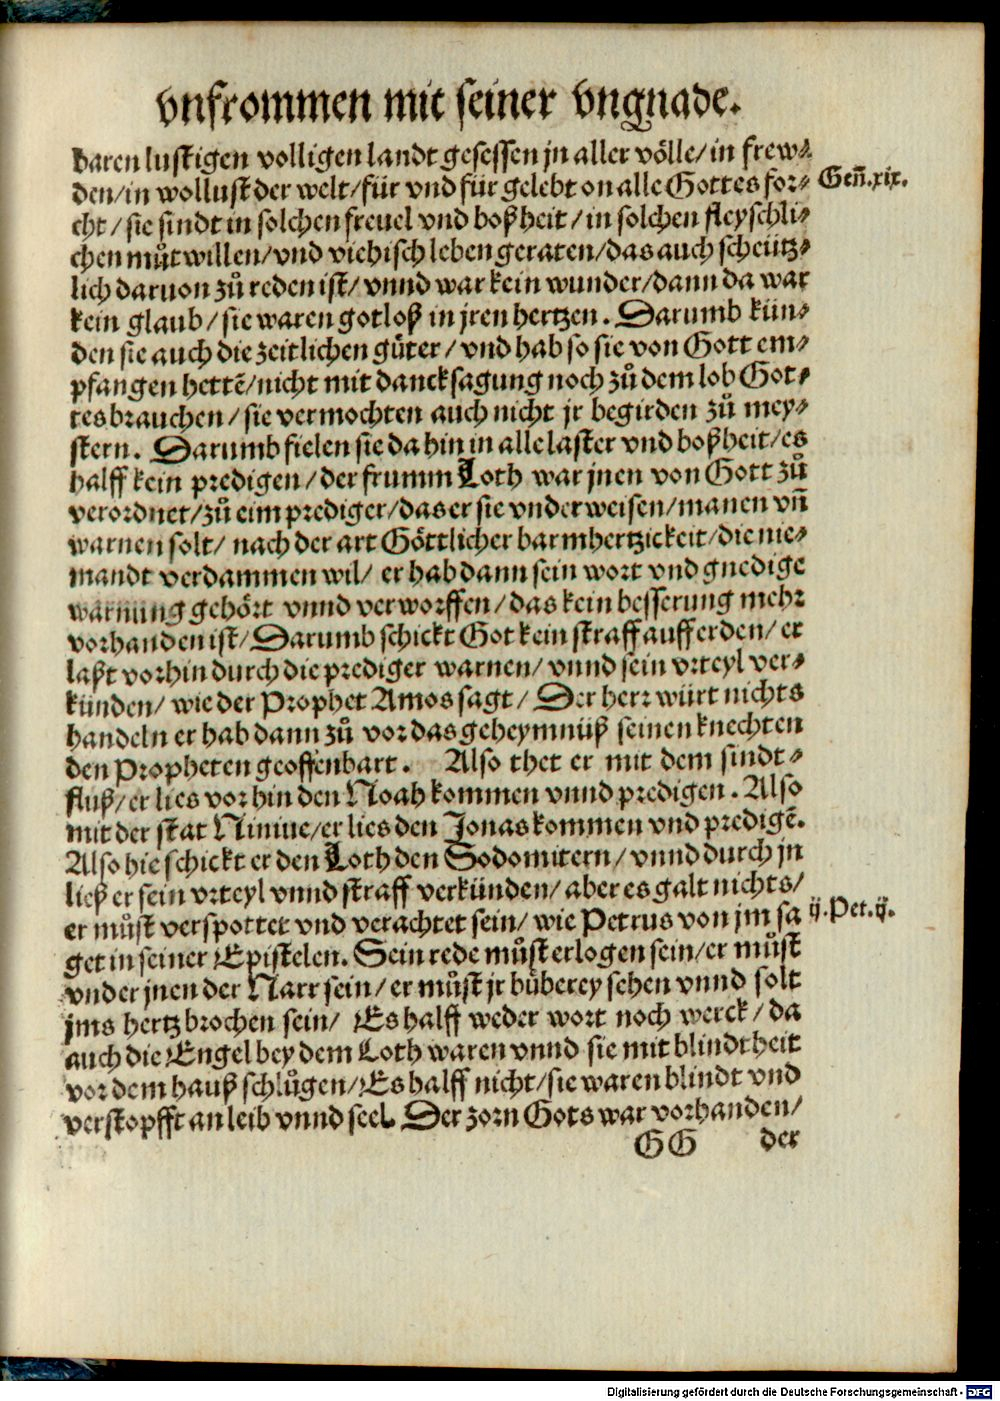 vnfrommen mit seiner vngnade.
baren lustigen volligen landt gesessen jn aller völle/ in frew⸗
den/ in wollust der welt/ für vnd für gelebt on alle Gottes for⸗ Geñ.xix.
cht/ sie sindt in solchen freuel vnd boßheit/ in solchen fleyschli⸗
chen můtwillen/ vnd viehisch leben geraten/ das auch scheützt⸗
lich daruon zů reden ist/ vnnd war kein wunder/ dann da war
kein glaub/ sie waren gotloß in jren hertzen. Darumb kün⸗
den sie auch die zeitlichen gůter/ vnd hab so sie von Gott em⸗
pfangen hettē/ nicht mit dancksagung noch zů dem lob Got⸗
tes brauchen/ sie vermochten auch nicht jr begirden zů mey⸗
stern. Darumb fielen sie da hin in alle laster vnd boßheit/ es
halff kein predigen/ der frumm Loth war jnen von Gott zů
verordnet/ zů eim prediger/ das er sie vnderweisen/ manen vñ
warnen solt/ nach der art Göttlicher barmhertzickeit/ die nie⸗
mandt verdammen wil/ er hab dann sein wort vnd gnedige
warnung gehört vnnd verworffen/ das kein besserung mehr
vorhanden ist/ Darumb schickt Got kein straff auff erden/ er
laßt vorhin durch die prediger warnen/ vnnd sein vrteyl ver⸗
künden/ wie der Prophet Amos sagt/ Der herr würt nichts
handeln er hab dann zů vor das geheymnüß seinen knechten
den Propheten geoffenbart. Also thet er mit dem sindt⸗
fluß/ er lies vorhin den Noah kommen vnnd predigen. Also
mit der stat Niniue/ er lies den Jonas kommen vnd predigē.
Also hie schickt er den Loth den Sodomitern/ vnnd durch jn
ließ er sein vrteyl vnnd straff verkünden/ aber es galt nichts/
er můst verspottet vnd verachtet sein/ wie Petrus von jm sa ij.Pet.ij.
get in seiner Epistelen. Sein rede můst erlogen sein/ er můst
vnder jnen der Narr sein/ er můst jr büberey sehen vnnd solt
jms hertz brochen sein/ Es halff weder wort noch werck/ da
auch die Engel bey dem Loth waren vnnd sie mit blindtheit
vor dem hauß schlůgen/ Es halff nicht/ sie waren blindt vnd
verstopfft an leib vnnd seel. Der zorn Gots war vorhanden/
GG der
Digitalisierung gefördert durch die Deutsche Forschungsgemeinschaft - DFG